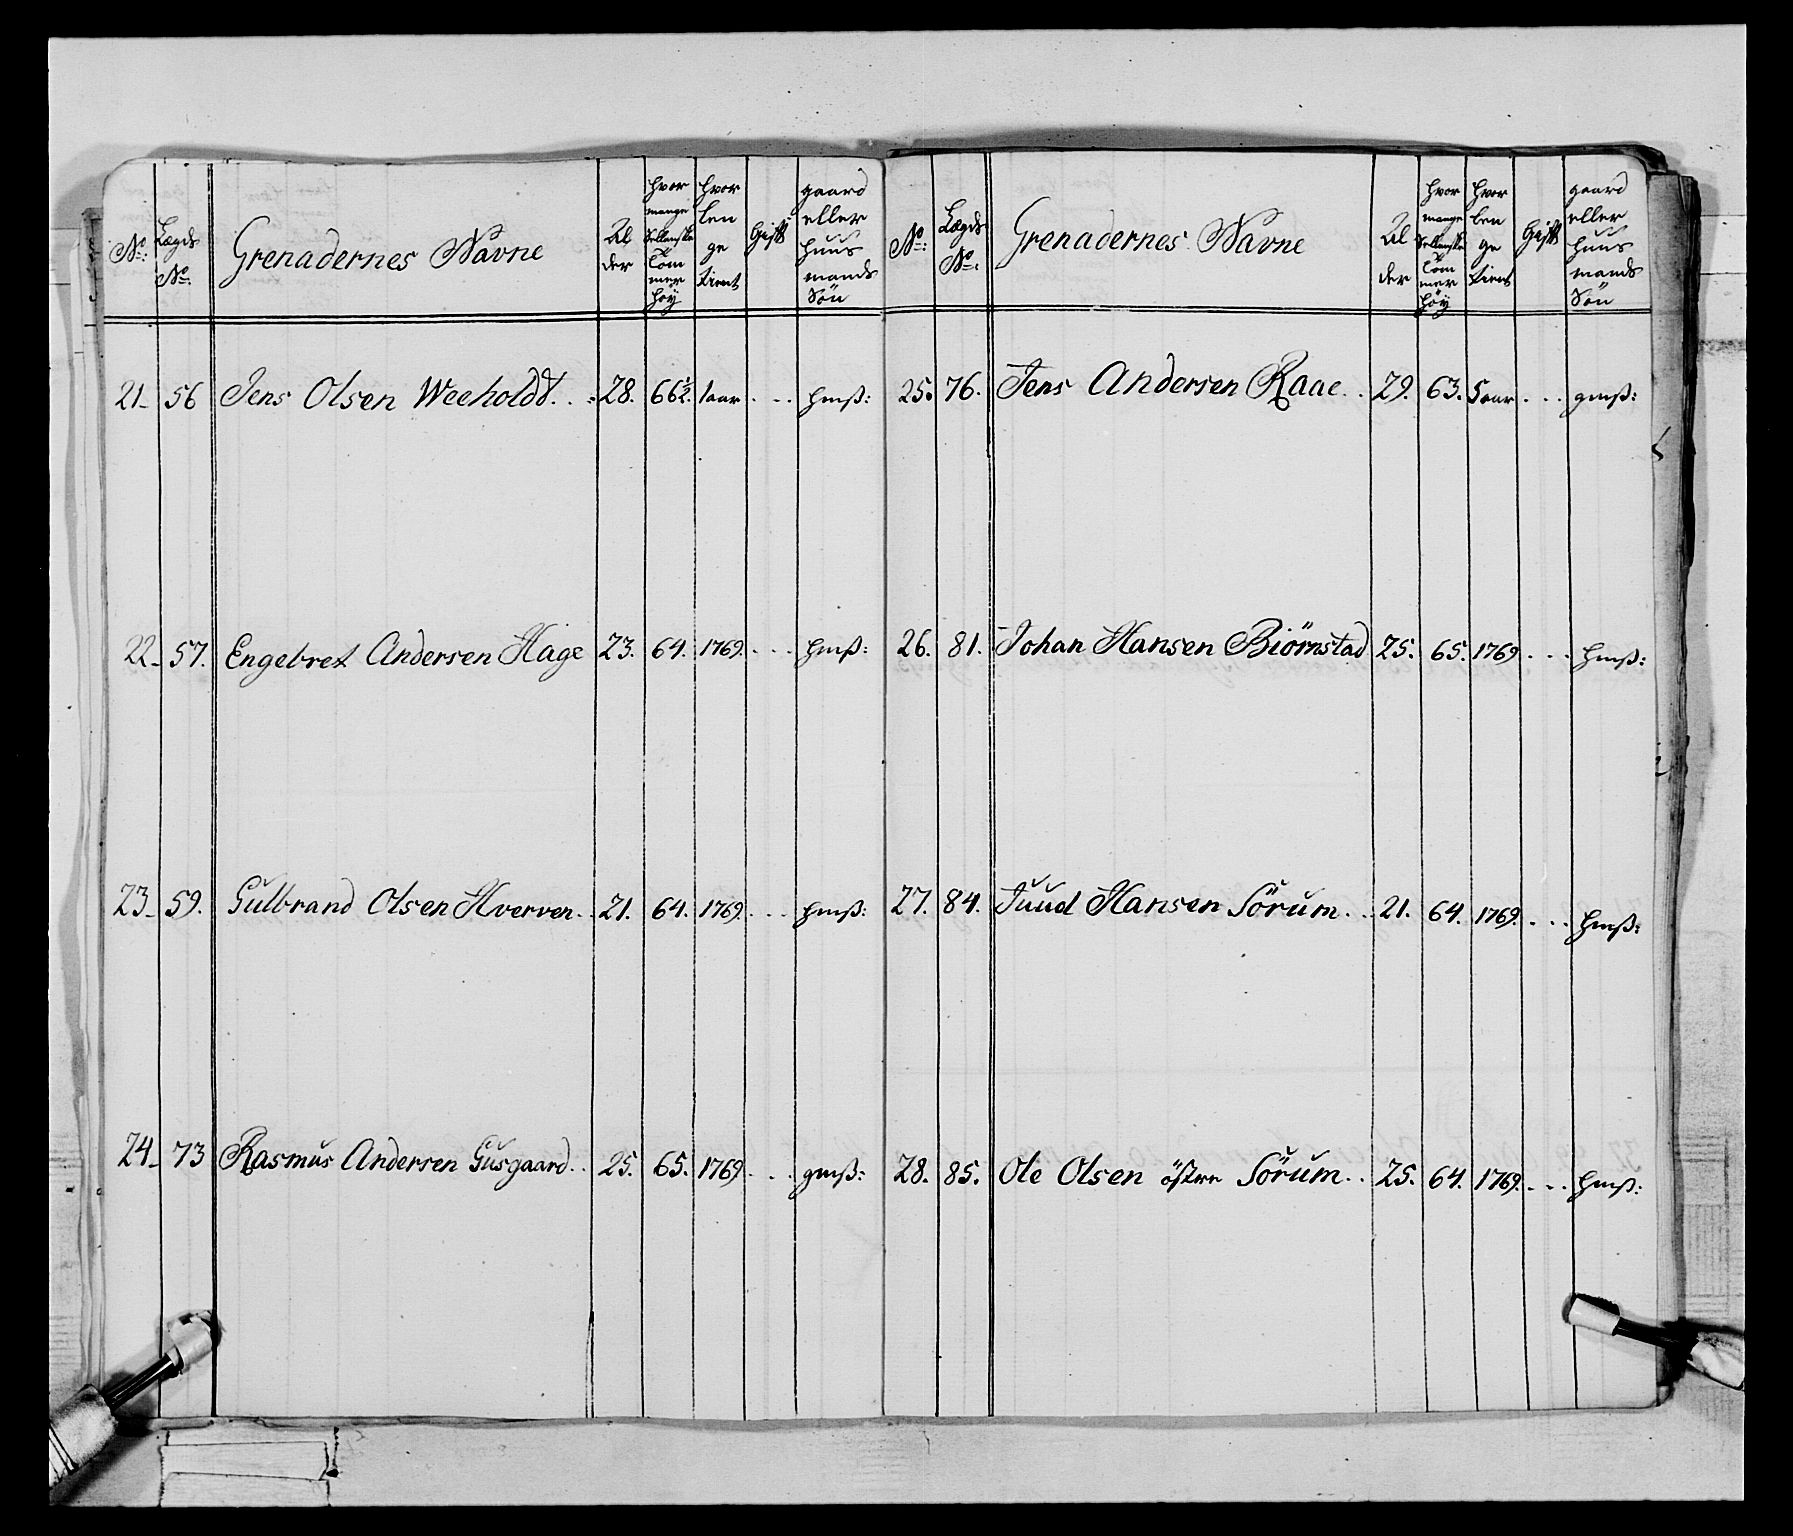 No: Lægds No. Grenadernes Navne Alder hvor mange Sellanske Tommer høÿ hvor lenge tient Gift gaard eller huusmands Søn
21_ 56 Jens Olsen Weeholdt. . 28. 66½. 1 aar . . . hmß:
22_ 57. Engebret Andersen Hage 23. 64. 1769. . . . hmß:
23_ 59. Gulbrand Olsen Hverven. . 21. 64. 1769. . . . hmß:
24_ 73 Rasmus Andersen Gusgaard. . 25. 65. 1769. . . . gmß:
No: Lægds No: Grenadernes Navne Alder hvor mange Sellanske Tommer høÿ hvor lenge tient Gift gaard eller huusmands Søn
25. 76. Jens Andersen Raae. . 29. 63. 5 aar . . . gmß:
26. 81. Johan Hansen Biörnstad 25. 65. 1769. . . . hmß:
27. 84. Juud Hansen Sörum. . . 21. 64. 1769. . . . hmß:
28. 85. Ole Olsen östre Sörum. . 25. 64. 1769. . . . hmß: